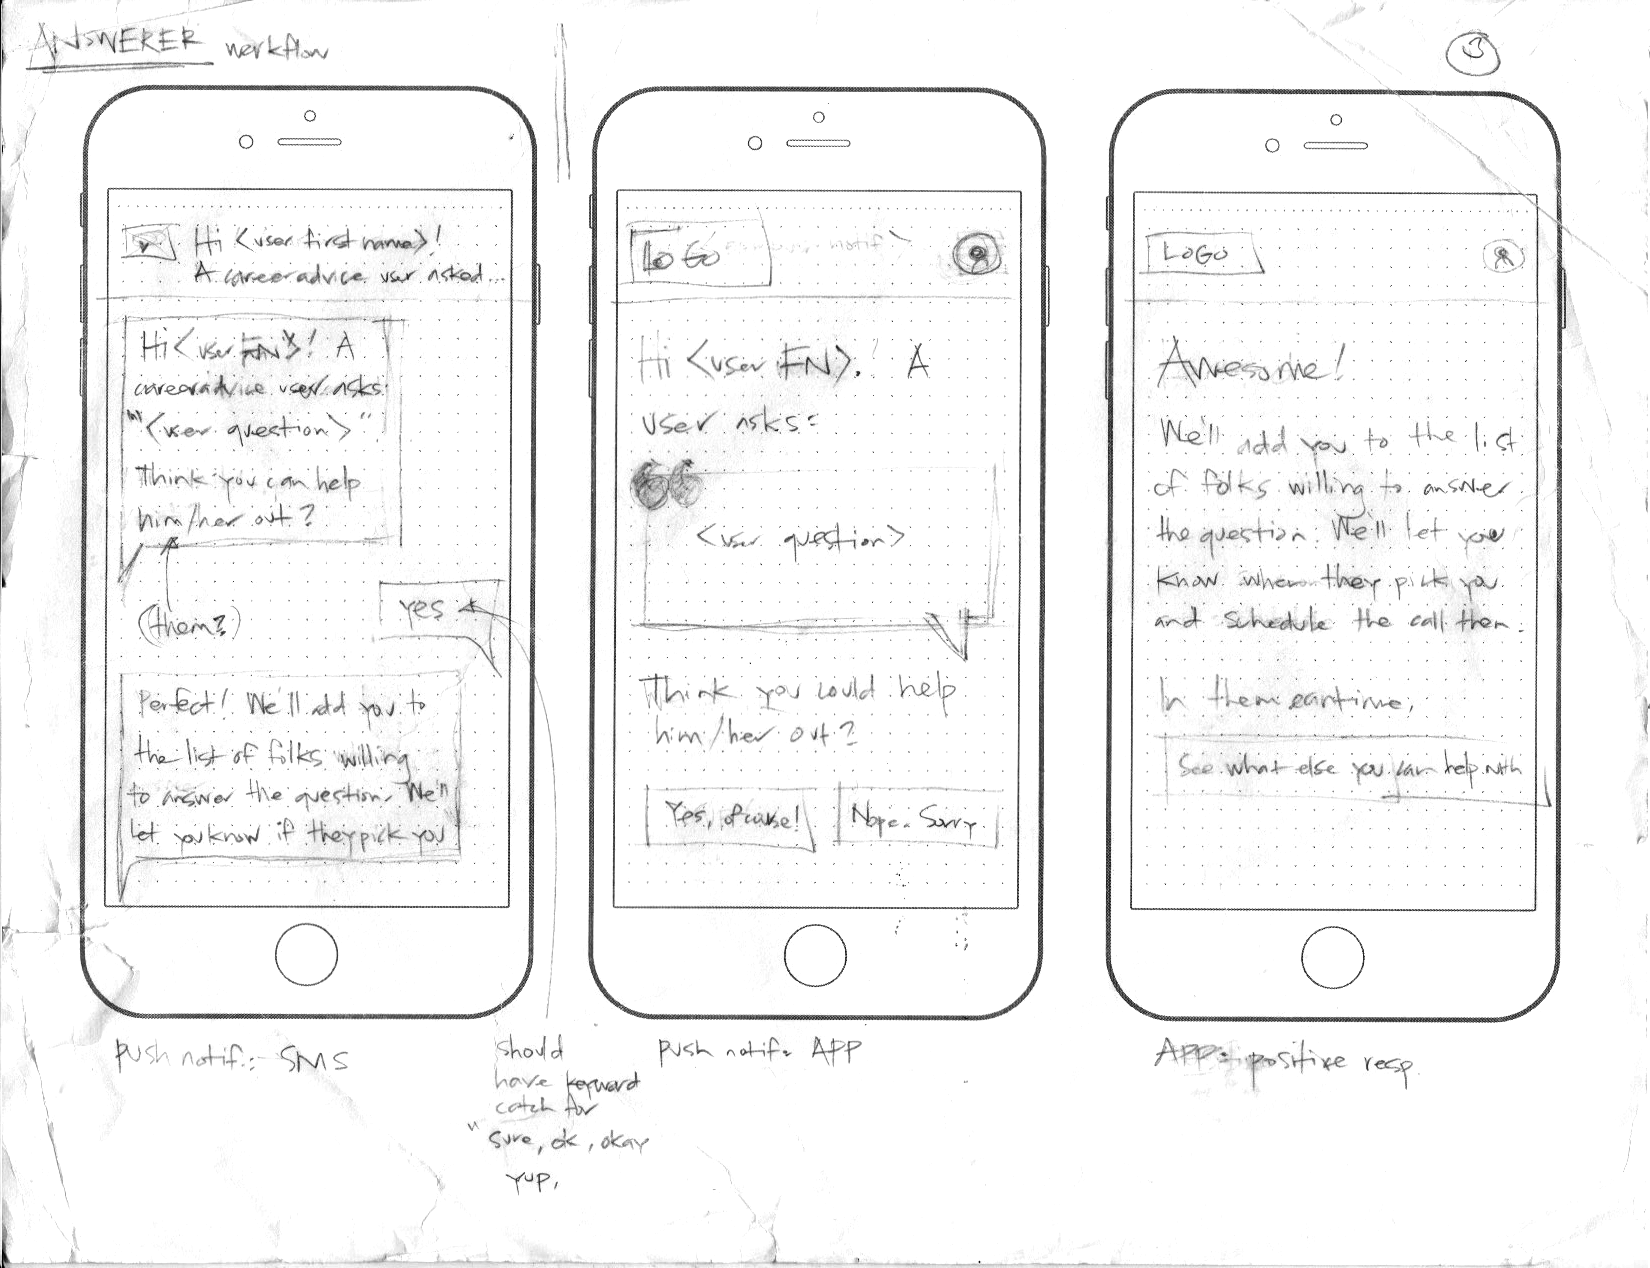 ANSWERER workflow
Hi <user first name>!
A careeradvice user asked...
Hi <user FN>! A
careeradvice user asks:
"<user question>"
Think you can help
him/her out?
(them?)
yes
Perfect! We'll add you to
the list of folks willing
to answer the question. We'll
let you know if they pick you
push notif.: SMS
should
have keyword
catch for
"sure, ok, okay
yup,
LOGO
Hi <user FN>. A
user asks:
<user question>
Think you could help
him/her out?
Yes, of course!
Nope. Sorry.
push notif: APP
LOGO
Awesome!
We'll add you to the list
of folks willing to answer
the question. We'll let you
know when they pick you
and schedule the call then.
In the meantime,
See what else you can help with
APP: positive resp